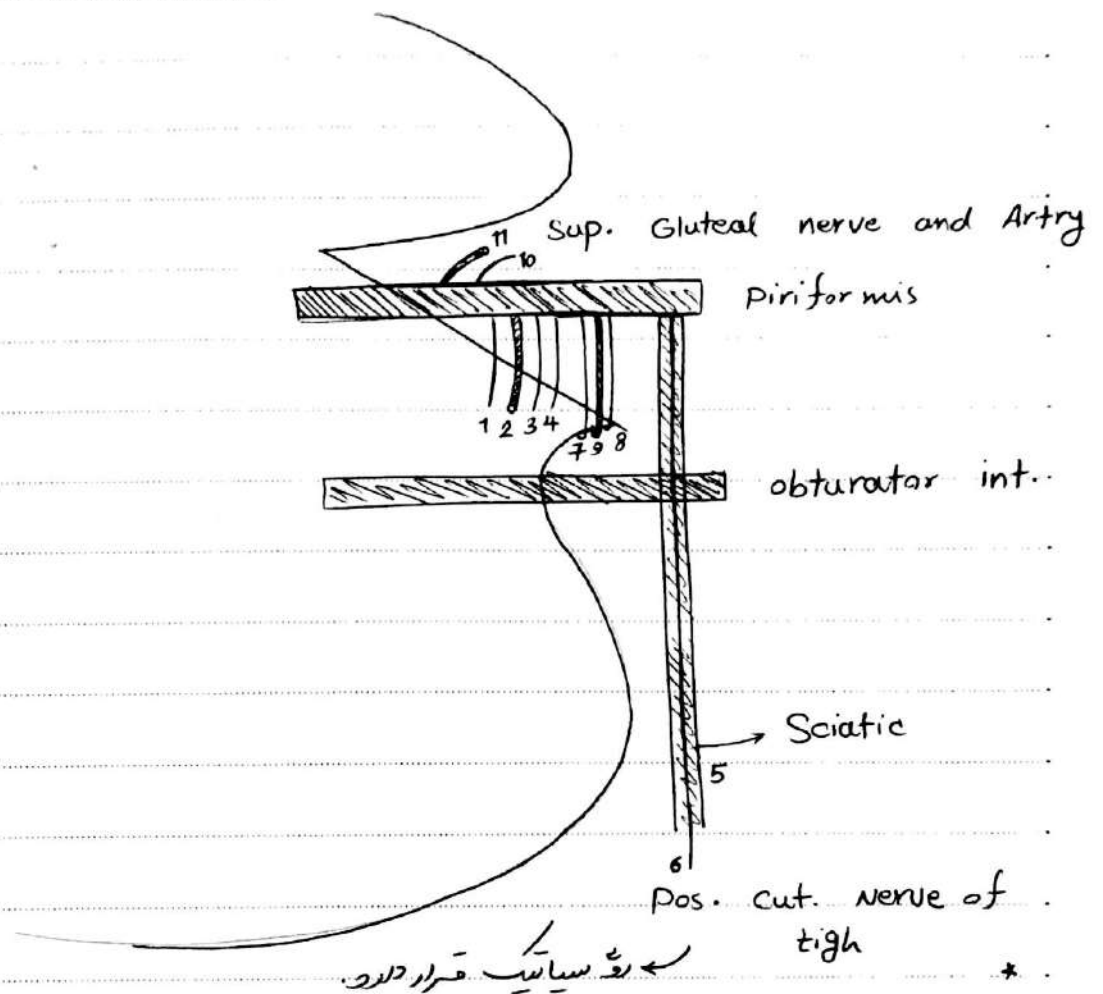 11 Sup. Gluteal nerve and Artry
10
Piriformis
1 2 3 4 7 9 8
obturator int.
Sciatic
5
6
Pos. cut. nerve of
tigh
روی سیاتیک قرار دارد.
*